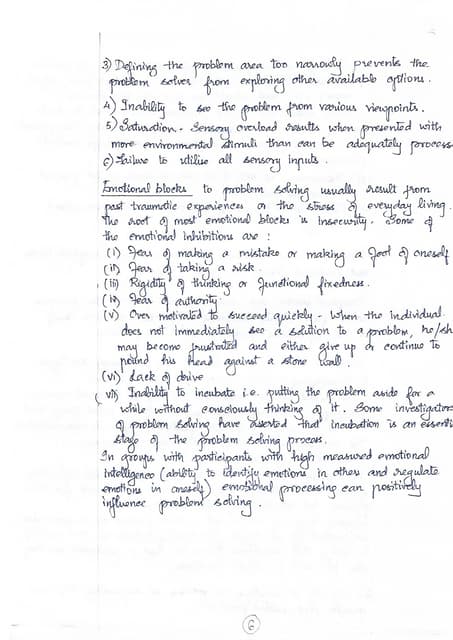 3) Defining the problem area too narrowly prevents the
problem solver from exploring other available options.
4) Inability to see the problem from various viewpoints.
5) Saturation - Sensory overload results when presented with
more environmental stimuli than can be adequately process
6) Failure to utilise all sensory inputs.
Emotional blocks to problem solving usually result from
past traumatic experiences or the stress of everyday living.
The root of most emotional blocks is insecurity. Some of
the emotional inhibitions are :
(i) Fear of making a mistake or making a fool of oneself
(ii) Fear of taking a risk.
(iii) Rigidity of thinking or functional fixedness.
(iv) Fear of authority.
(v) Over motivated to succeed quickly - When the individual
does not immediately see a solution to a problem, he/sh
may become frustrated and either give up or continue to
pound his head against a stone wall.
(vi) Lack of drive
(vii) Inability to incubate i.e. putting the problem aside for a
while without consciously thinking of it. Some investigators
of problem solving have asserted that incubation is an essenti
stage of the problem solving process.
In groups with participants with high measured emotional
intelligence (ability to identify emotions in others and regulate
emotions in oneself) emotional processing can positively
influence problem solving.
6